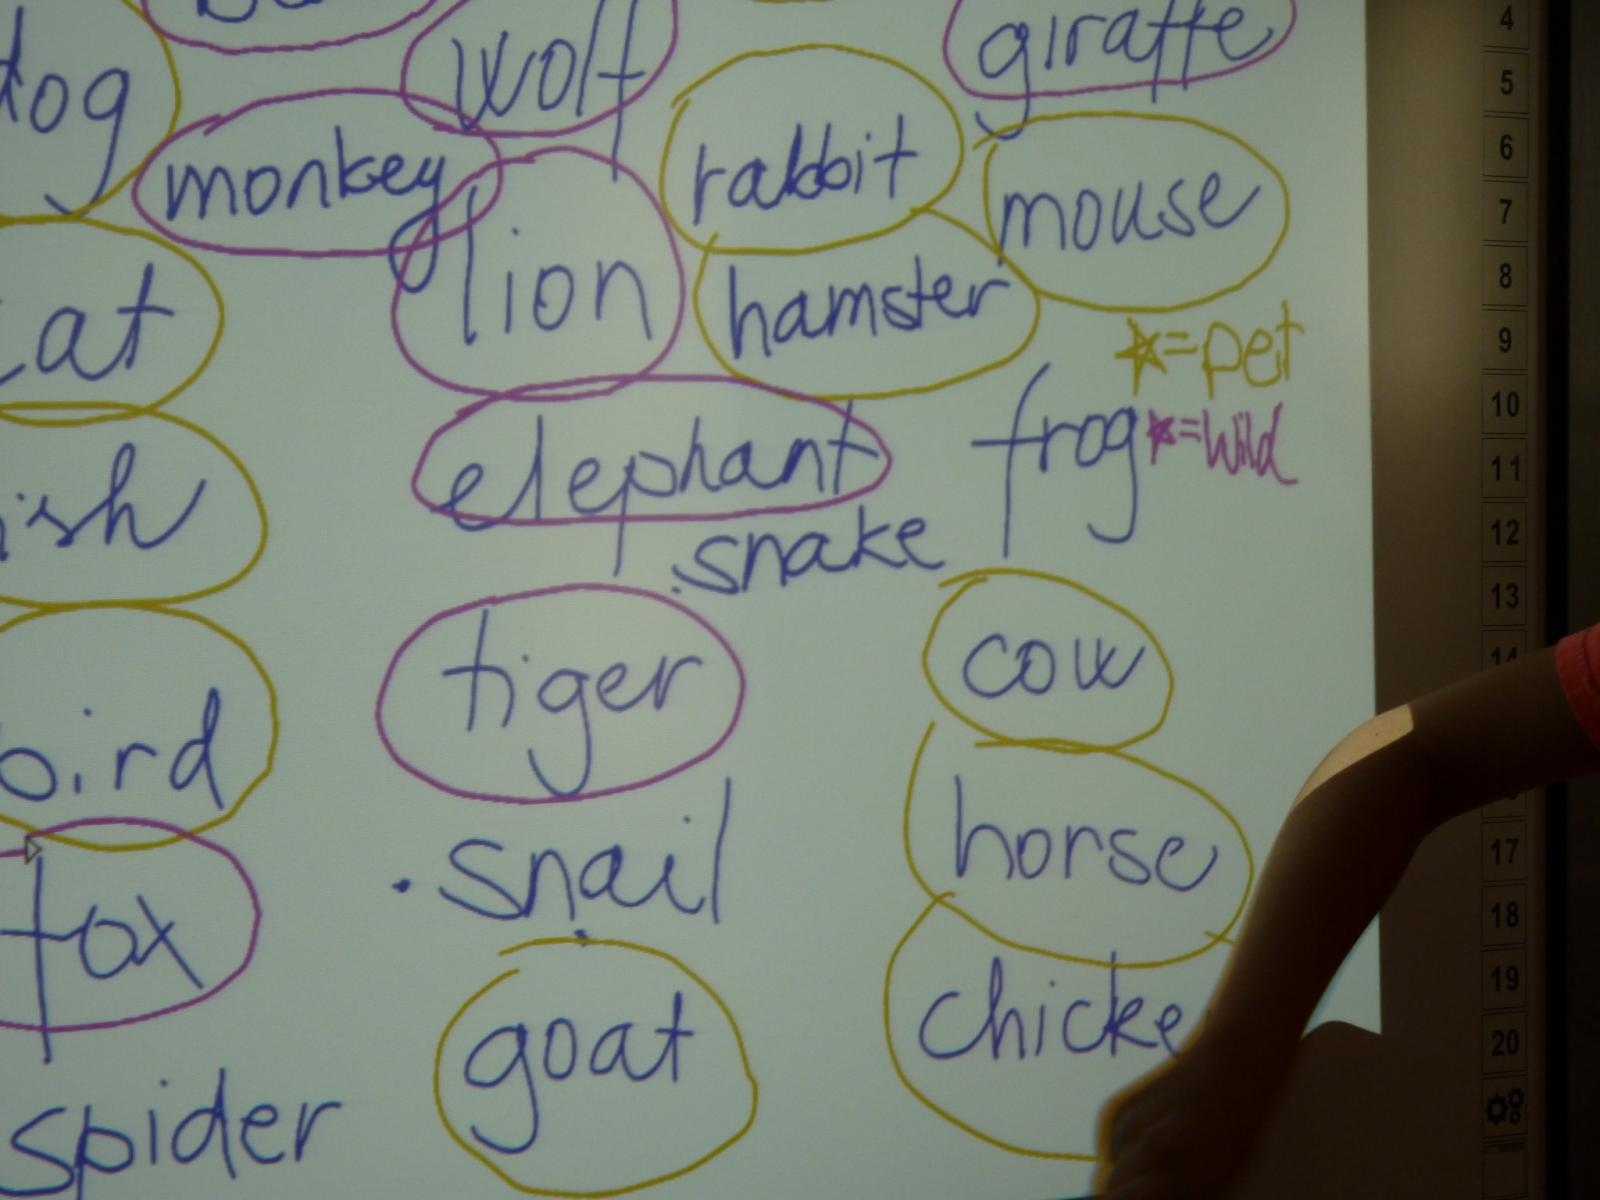 wolf
giraffe
dog
monkey
rabbit
mouse
lion
hamster
cat
*=pet
frog
*=wild
elephant
snake
ish
tiger
cow
bird
horse
snail
fox
goat
chicke
spider
4
5
6
7
8
9
10
11
12
13
14
17
18
19
20